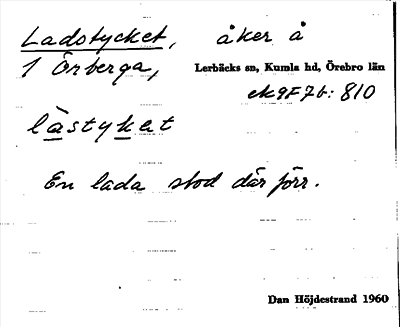 Ladstycket, åker å
1 Örberga, Lerbäcks sn, Kumla hd, Örebro län
ek 9F7b: 810
lastyket
En lada stod där förr.
Dan Höjdestrand 1960